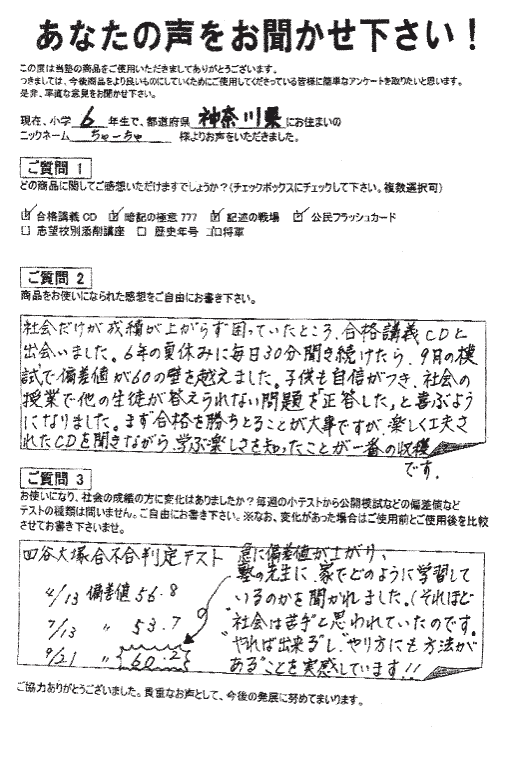 あなたの声をお聞かせ下さい！
この度は当塾の商品をご使用いただきましてありがとうございます。
つきましては、今後商品をより良いものにしていくためにご使用してくださっている皆様に簡単なアンケートを取りたいと思います。
是非、率直な意見をお聞かせ下さい。
現在、小学 6 年生で、都道府県 神奈川県 にお住まいの
ニックネーム ちゃーちゃ 様よりお声をいただきました。
ご質問 1
どの商品に関してご感想いただけますでしょうか？(チェックボックスにチェックして下さい。複数選択可)
☑ 合格講義CD ☑ 暗記の極意777 ☑ 記述の戦場 ☑ 公民フラッシュカード
□ 志望校別添削講座 □ 歴史年号 □将軍
ご質問 2
商品をお使いになられた感想をご自由にお書き下さい。
社会だけが成積が上がらず困っていたところ、合格講義CDと
出会いました。6年の夏休みに毎日30分聞き続けたら、9月の模
試で偏差値が60の壁を越えました。子供も自信がつき、社会の
授業で他の生徒が答えられない問題を正答した、と喜ぶよう
になりました。まず合格を勝ちとることが大事ですが、楽しく工夫さ
れたCDを聞きながら、学ぶ楽しさを知ったことが一番の収穫
です。
ご質問 3
お使いになり、社会の成績の方に変化はありましたか？毎週の小テストから公開模試などの偏差値など
テストの種類は問いません。ご自由にお書き下さい。※なお、変化があった場合はご使用前とご使用後を比較
させてお書き下さいませ。
四谷大塚合不合判定テスト
4/13 偏差値 56.8
7/13 〃 53.7
9/21 〃 60.2
急に偏差値が上がり、
塾の先生に、家でどのように学習して
いるのかを聞かれました。(それほど
“社会は苦手”と思われていたのです。
“やれば出来る”し、やり方にも方法が
ある”ことを実感しています!!
ご協力ありがとうございました。貴重なお声として、今後の発展に努めてまいります。